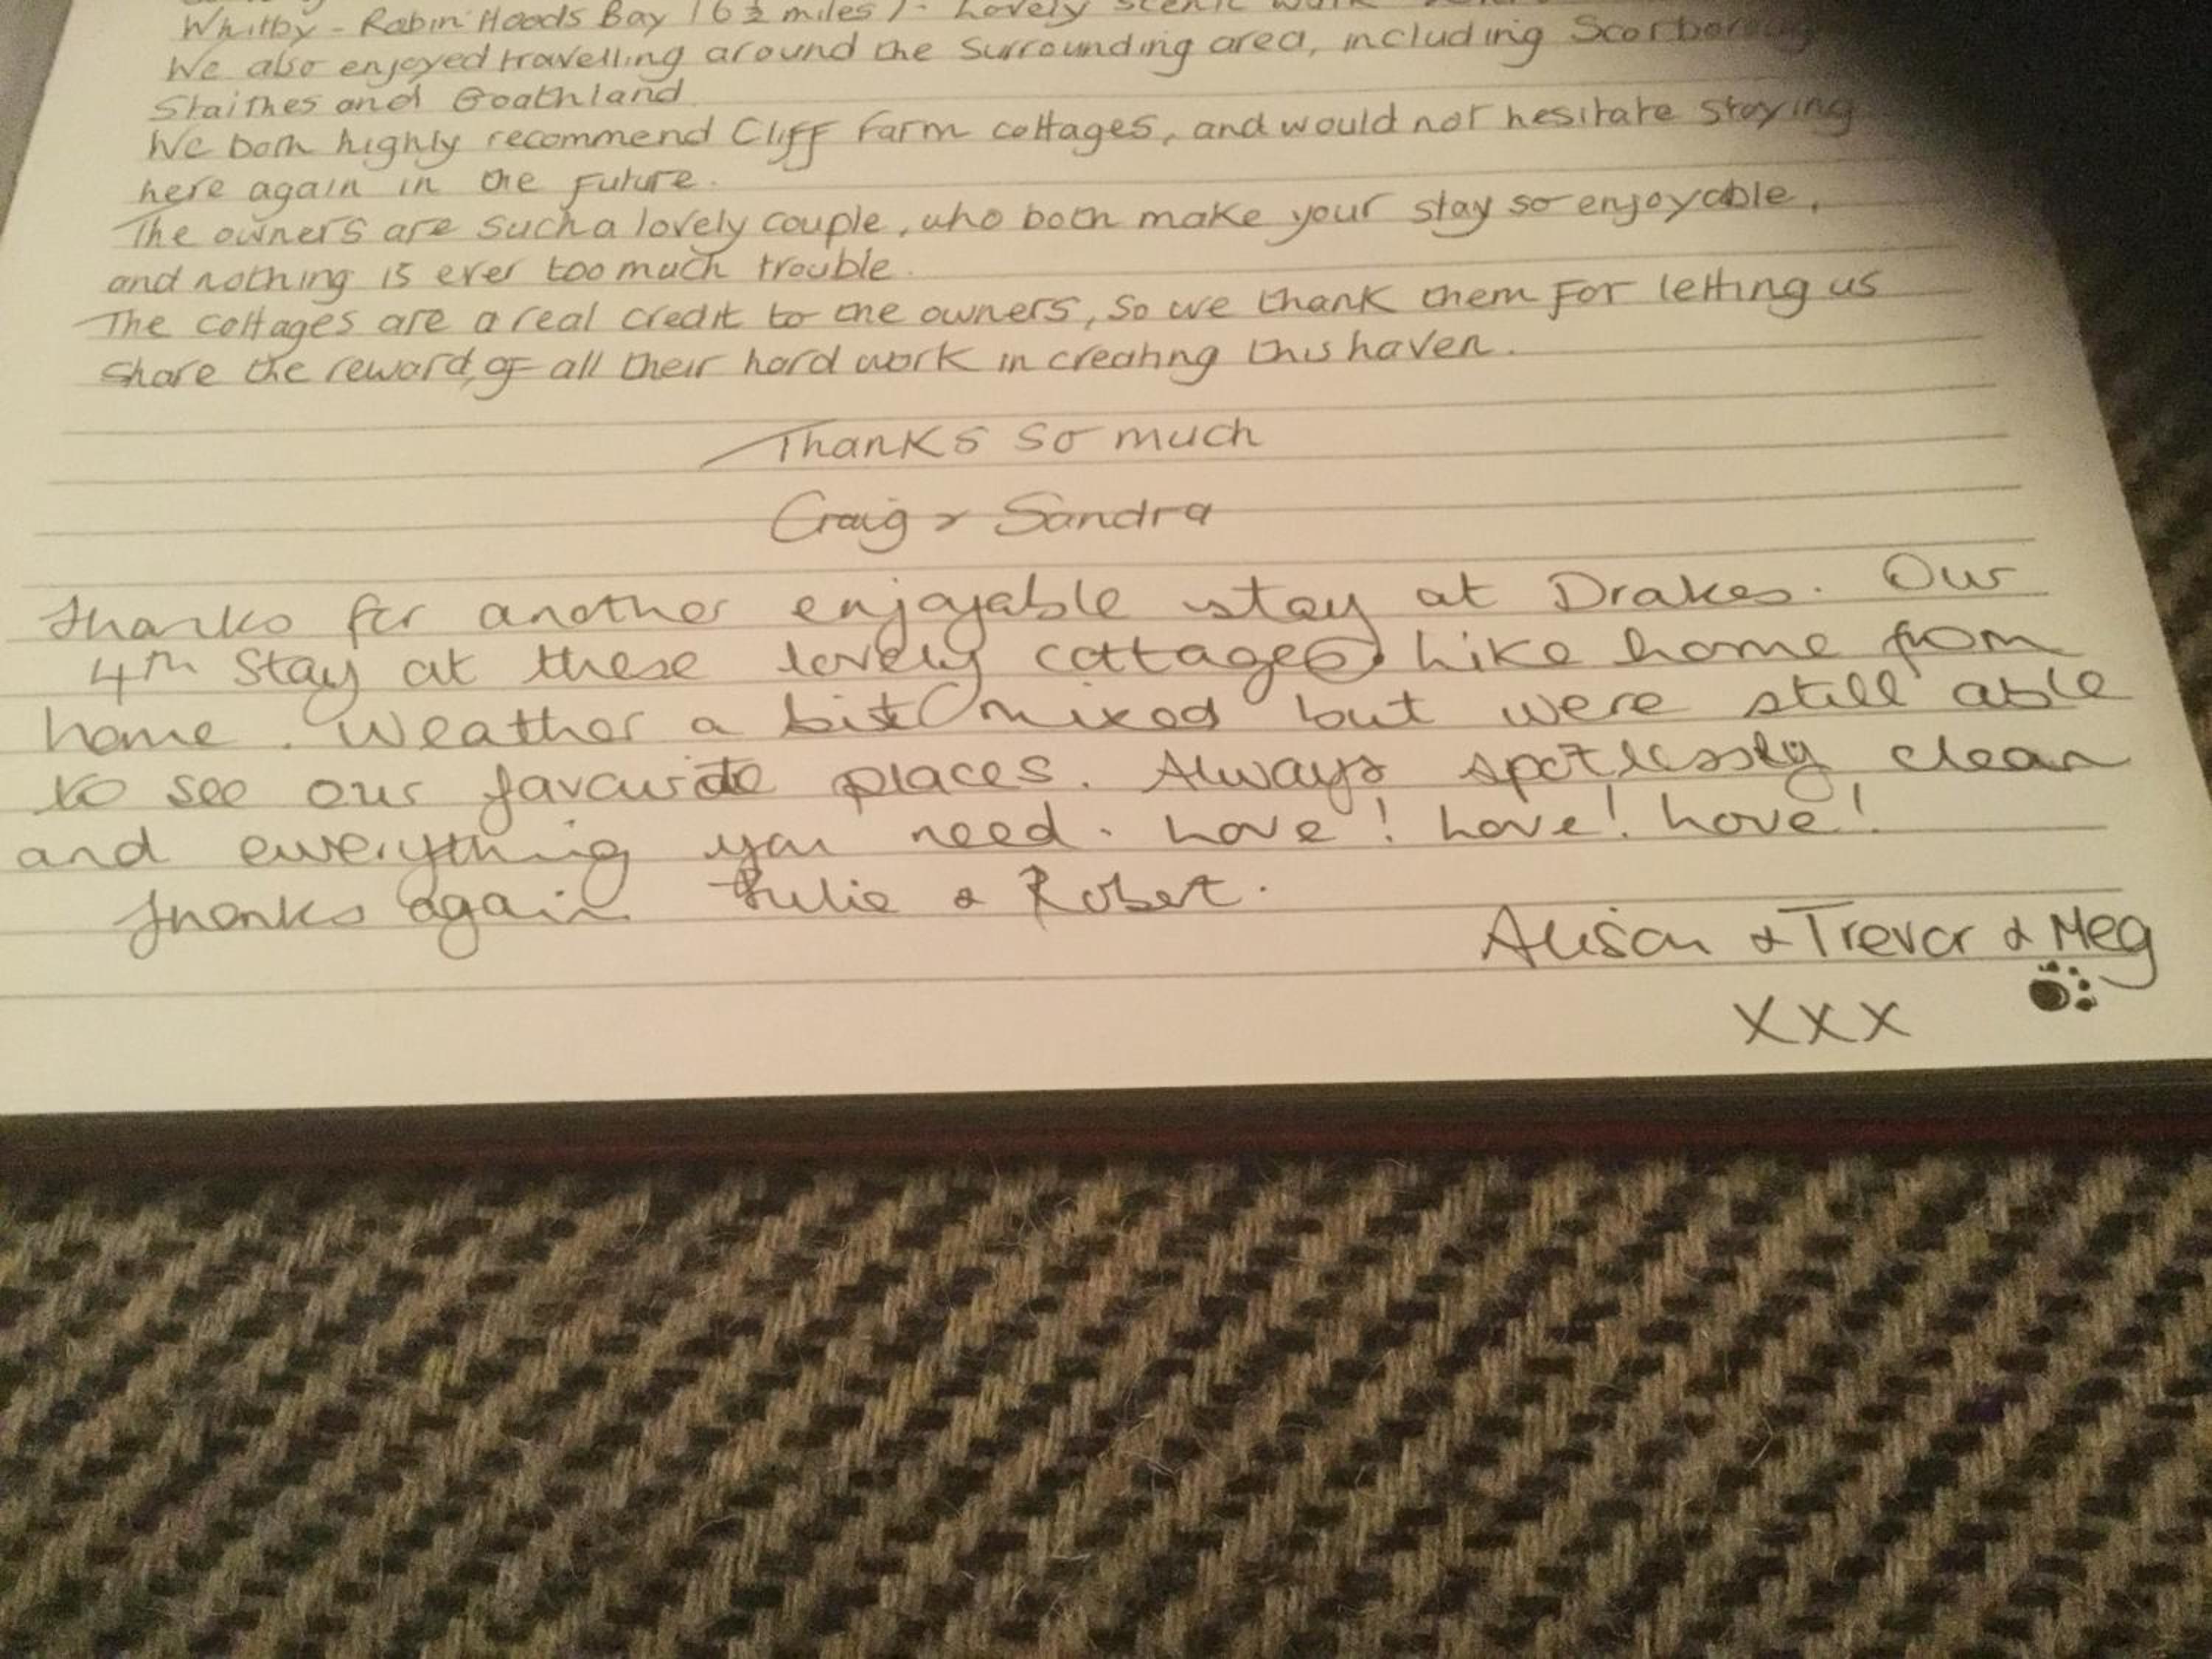 Whitby - Robin Hoods Bay (6½ miles) - Lovely scenic walk
We also enjoyed travelling around the surrounding area, including Scorborough
Staithes and Goathland
We both highly recommend Cliff Farm cottages, and would not hesitate staying
here again in the future.
The owners are such a lovely couple, who both make your stay so enjoyable,
and nothing is ever too much trouble.
The cottages are a real credit to the owners, so we thank them for letting us
share the reward, of all their hard work in creating this haven.
Thanks so much
Craig & Sandra
Thanks for another enjoyable stay at Drakes. Our
4th Stay at these lovely cottages. Like home from
home. Weather a bit mixed but were still able
to see our favourite places. Always spotlessly clean
and everything you need. Love! Love! Love!
Thanks again Julie & Robert.
Alison & Trevor & Meg
XXX